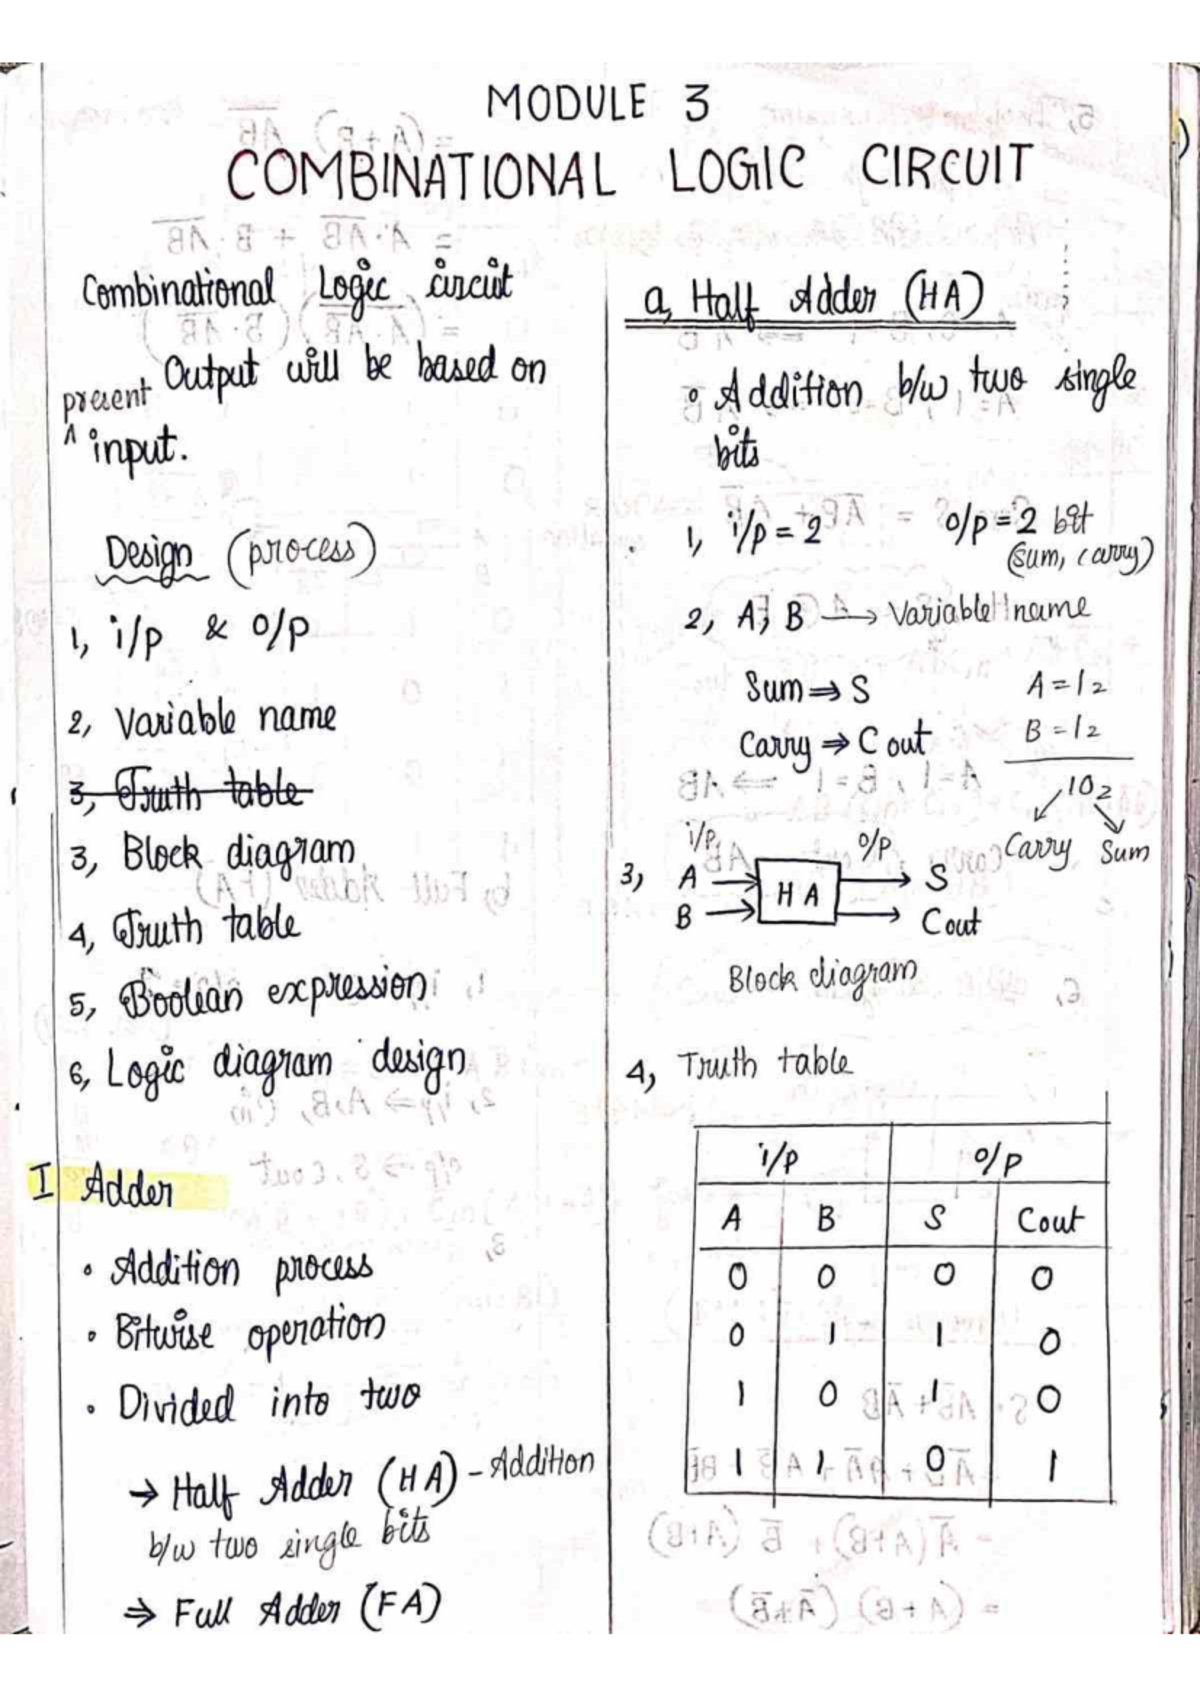 MODULE 3
COMBINATIONAL LOGIC CIRCUIT
Combinational Logic circuit
Output will be based on
present
^ input.
Design (process)
1, i/p & o/p
2, Variable name
3, Truth table
3, Block diagram
4, Truth table
5, Boolean expression
6, Logic diagram design
I Adder
• Addition process
• Bitwise operation
• Divided into two
→ Half Adder (HA) - Addition
b/w two single bits
⇒ Full Adder (FA)
a, Half Adder (HA)
• Addition b/w two single
bits
1, i/p = 2 o/p = 2 bit
(sum, carry)
2, A, B → Variable name
Sum ⇒ S
Carry ⇒ C out
A = 1 2
B = 1 2
10 2
Carry Sum
i/p o/p
3, A HA S
B Cout
Block diagram
4, Truth table
i/p o/p
A B S Cout
0 0 0 0
0 1 1 0
1 0 1 0
1 1 0 1